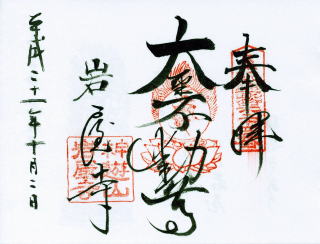 奉拝
大聖不動尊
岩屋寺
神遊山
岩屋寺
平成二十一年十月二日